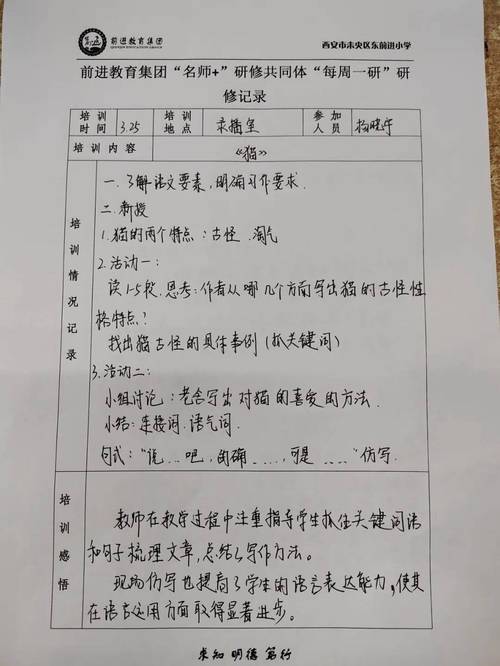 前进教育集团
QIANJIN EDUCATION GROUP
西安市未央区东前进小学
前进教育集团“名师+”研修共同体“每周一研”研
修记录
培训时间 3.25 培训地点 录播室 参加人员 杨晓
培训内容 《猫》
培训情况记录
一.了解语文要素,明确习作要求.
二.新授
1.猫的两个特点:古怪.淘气
2.活动一:
读1-5段.思考:作者从哪几个方面写出猫的古怪性
格特点?
找出猫古怪的具体事例(抓关键词)
3.活动二:
小组讨论:老舍写出对猫的喜爱的方法.
小结:连接词.语气词.
句式:“说...吧,的确....,可是....”仿写.
培训感悟
教师在教学过程中注重指导学生抓住关键词语
和句子梳理文章,总结写作方法。
现场仿写也提高了学生的语言表达能力,使其
在语言运用方面取得显著进步。
求知 明德 笃行